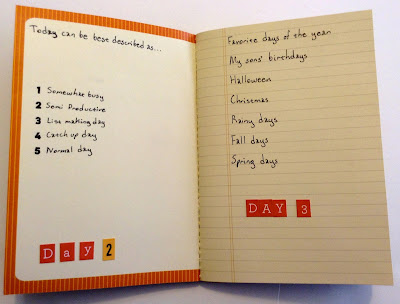 Today can be best described as...
1 Somewhat busy
2 Semi Productive
3 List making day
4 Catch up day
5 Normal day
Day 2
Favorite days of the year
My sons' birthdays
Halloween
Christmas
Rainy days
Fall days
Spring days
DAY 3